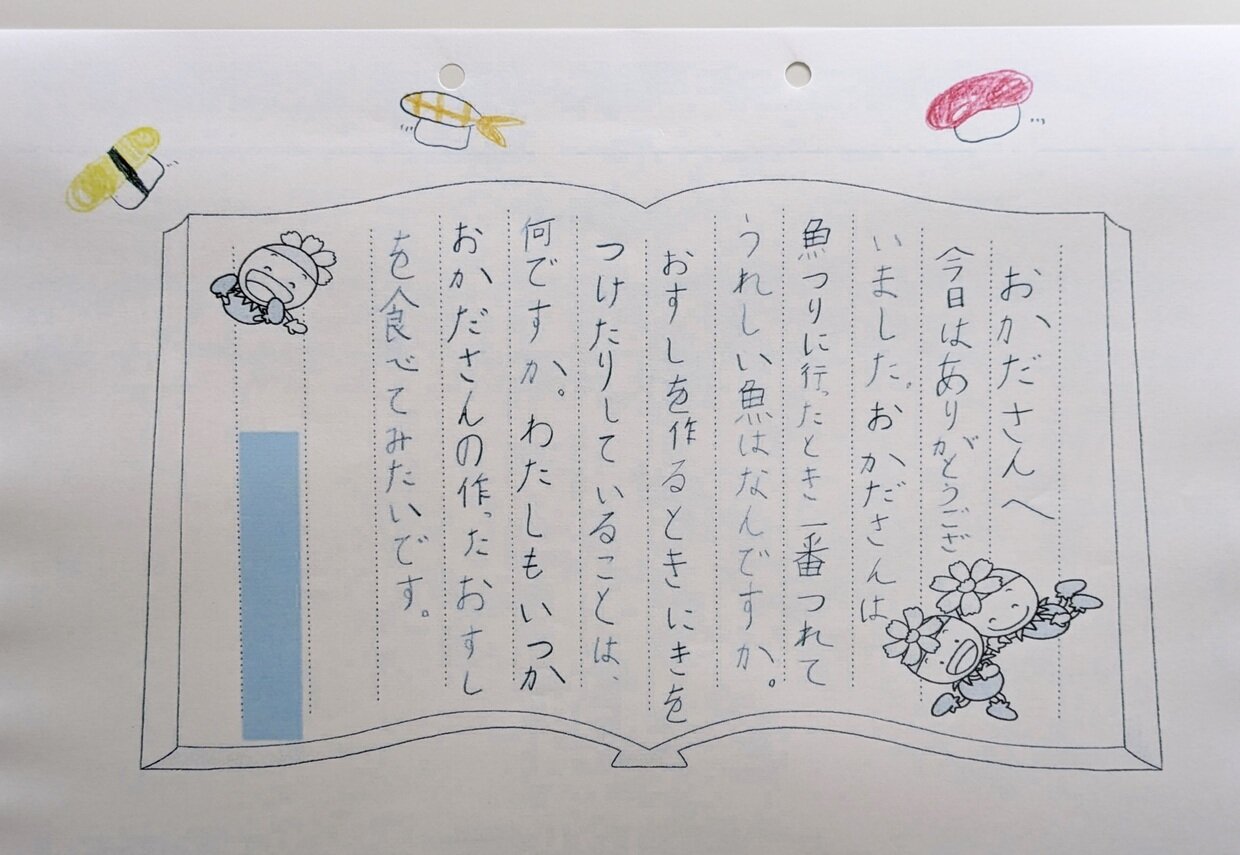 おかださんへ
今日はありがとうござ
いました。おかださんは
魚つりに行ったとき一番つれて
うれしい魚はなんですか。
おすしを作るときにきを
つけたりしていることは、
何ですか。わたしもいつか
おかださんの作ったおすし
を食べてみたいです。